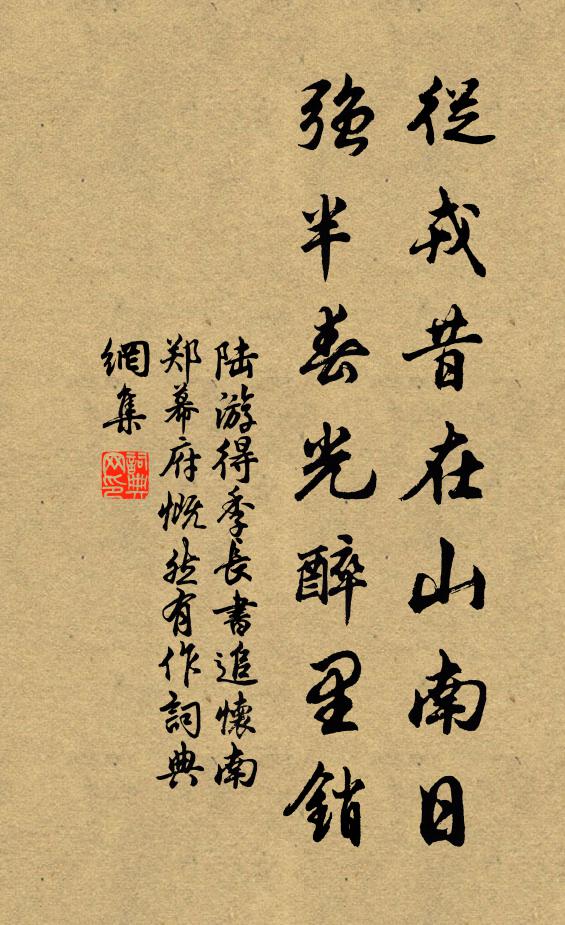 從戎昔在山南日
強半春光醉里銷
陆游得季長書追懷南
郑幕府慨然有作詞典
網集
詞典网印